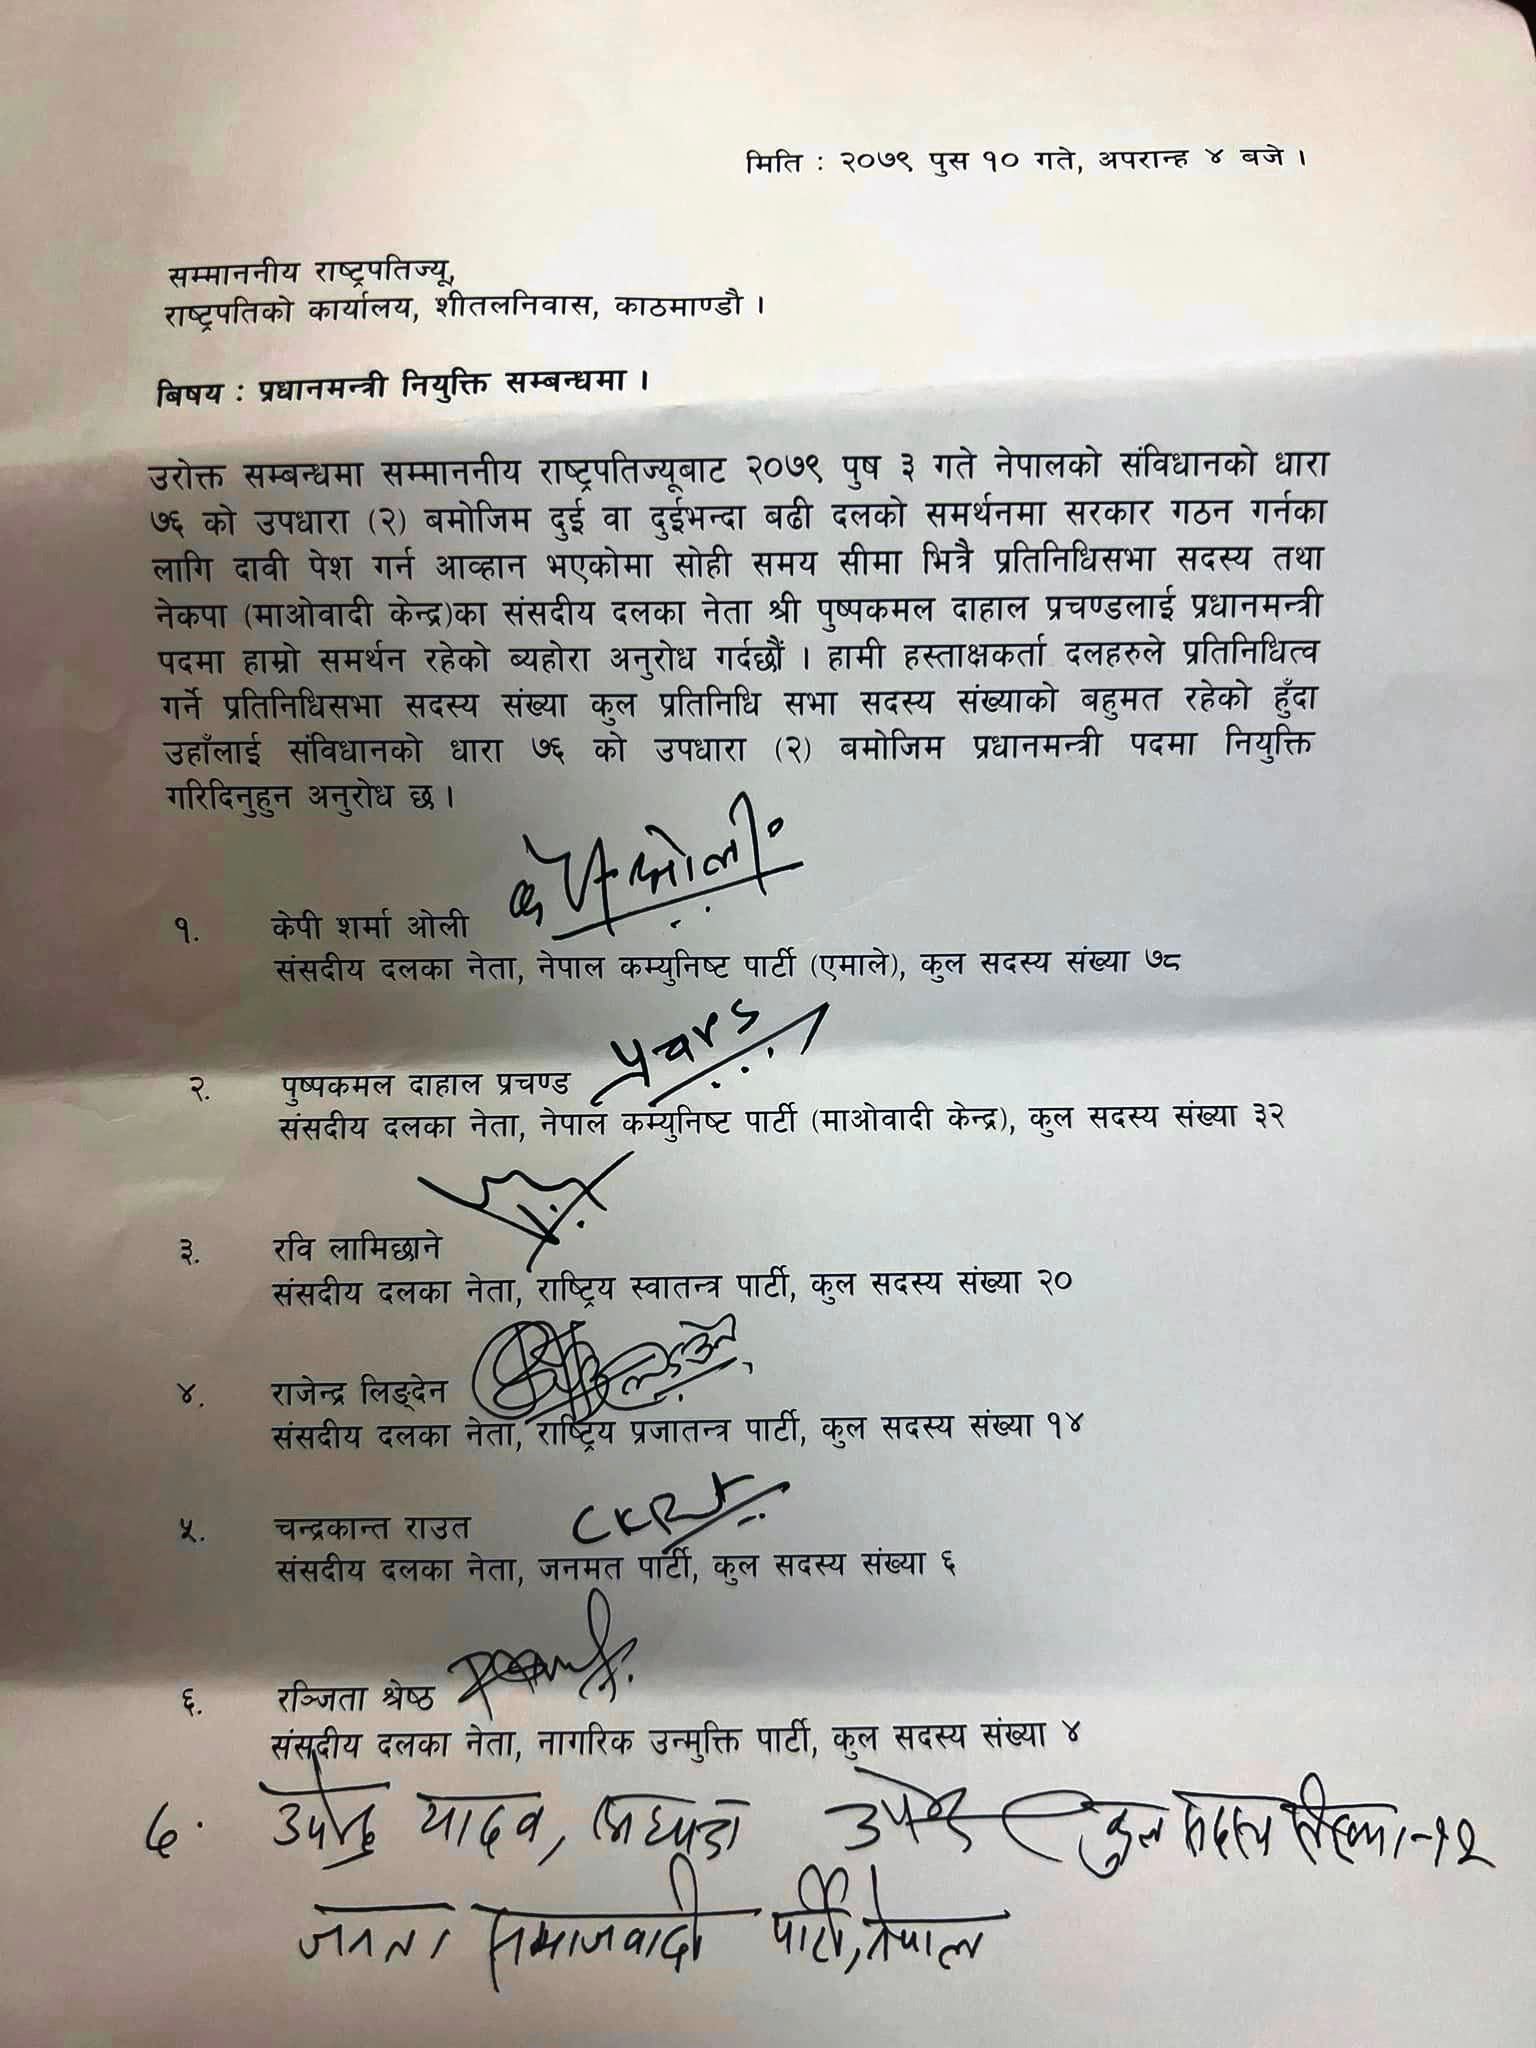 मिति : २०७९ पुस १० गते, अपरान्ह ४ बजे ।
सम्माननीय राष्ट्रपतिज्यू,
राष्ट्रपतिको कार्यालय, शीतलनिवास, काठमाण्डौ ।
बिषय : प्रधानमन्त्री नियुक्ति सम्बन्धमा ।
उरोक्त सम्बन्धमा सम्माननीय राष्ट्रपतिज्यूबाट २०७९ पुष ३ गते नेपालको संविधानको धारा
७६ को उपधारा (२) बमोजिम दुई वा दुईभन्दा बढी दलको समर्थनमा सरकार गठन गर्नका
लागि दावी पेश गर्न आव्हान भएकोमा सोही समय सीमा भित्रै प्रतिनिधिसभा सदस्य तथा
नेकपा (माओवादी केन्द्र)का संसदीय दलका नेता श्री पुष्पकमल दाहाल प्रचण्डलाई प्रधानमन्त्री
पदमा हाम्रो समर्थन रहेको ब्यहोरा अनुरोध गर्दछौं । हामी हस्ताक्षकर्ता दलहरुले प्रतिनिधित्व
गर्ने प्रतिनिधिसभा सदस्य संख्या कुल प्रतिनिधि सभा सदस्य संख्याको बहुमत रहेको हुँदा
उहाँलाई संविधानको धारा ७६ को उपधारा (२) बमोजिम प्रधानमन्त्री पदमा नियुक्ति
गरिदिनुहुन अनुरोध छ ।
के पी ओली
१. केपी शर्मा ओली
संसदीय दलका नेता, नेपाल कम्युनिष्ट पार्टी (एमाले), कुल सदस्य संख्या ७८
२. पुष्पकमल दाहाल प्रचण्ड प्रचण्ड
संसदीय दलका नेता, नेपाल कम्युनिष्ट पार्टी (माओवादी केन्द्र), कुल सदस्य संख्या ३२
३. रवि लामिछाने
संसदीय दलका नेता, राष्ट्रिय स्वातन्त्र पार्टी, कुल सदस्य संख्या २०
४. राजेन्द्र लिङ्देन
संसदीय दलका नेता, राष्ट्रिय प्रजातन्त्र पार्टी, कुल सदस्य संख्या १४
५. चन्द्रकान्त राउत
संसदीय दलका नेता, जनमत पार्टी, कुल सदस्य संख्या ६
६. रञ्जिता श्रेष्ठ
संसदीय दलका नेता, नागरिक उन्मुक्ति पार्टी, कुल सदस्य संख्या ४
७. उपेन्द्र यादव, अध्यक्ष कुल सदस्य संख्या-१२
जनता समाजवादी पार्टी, नेपाल